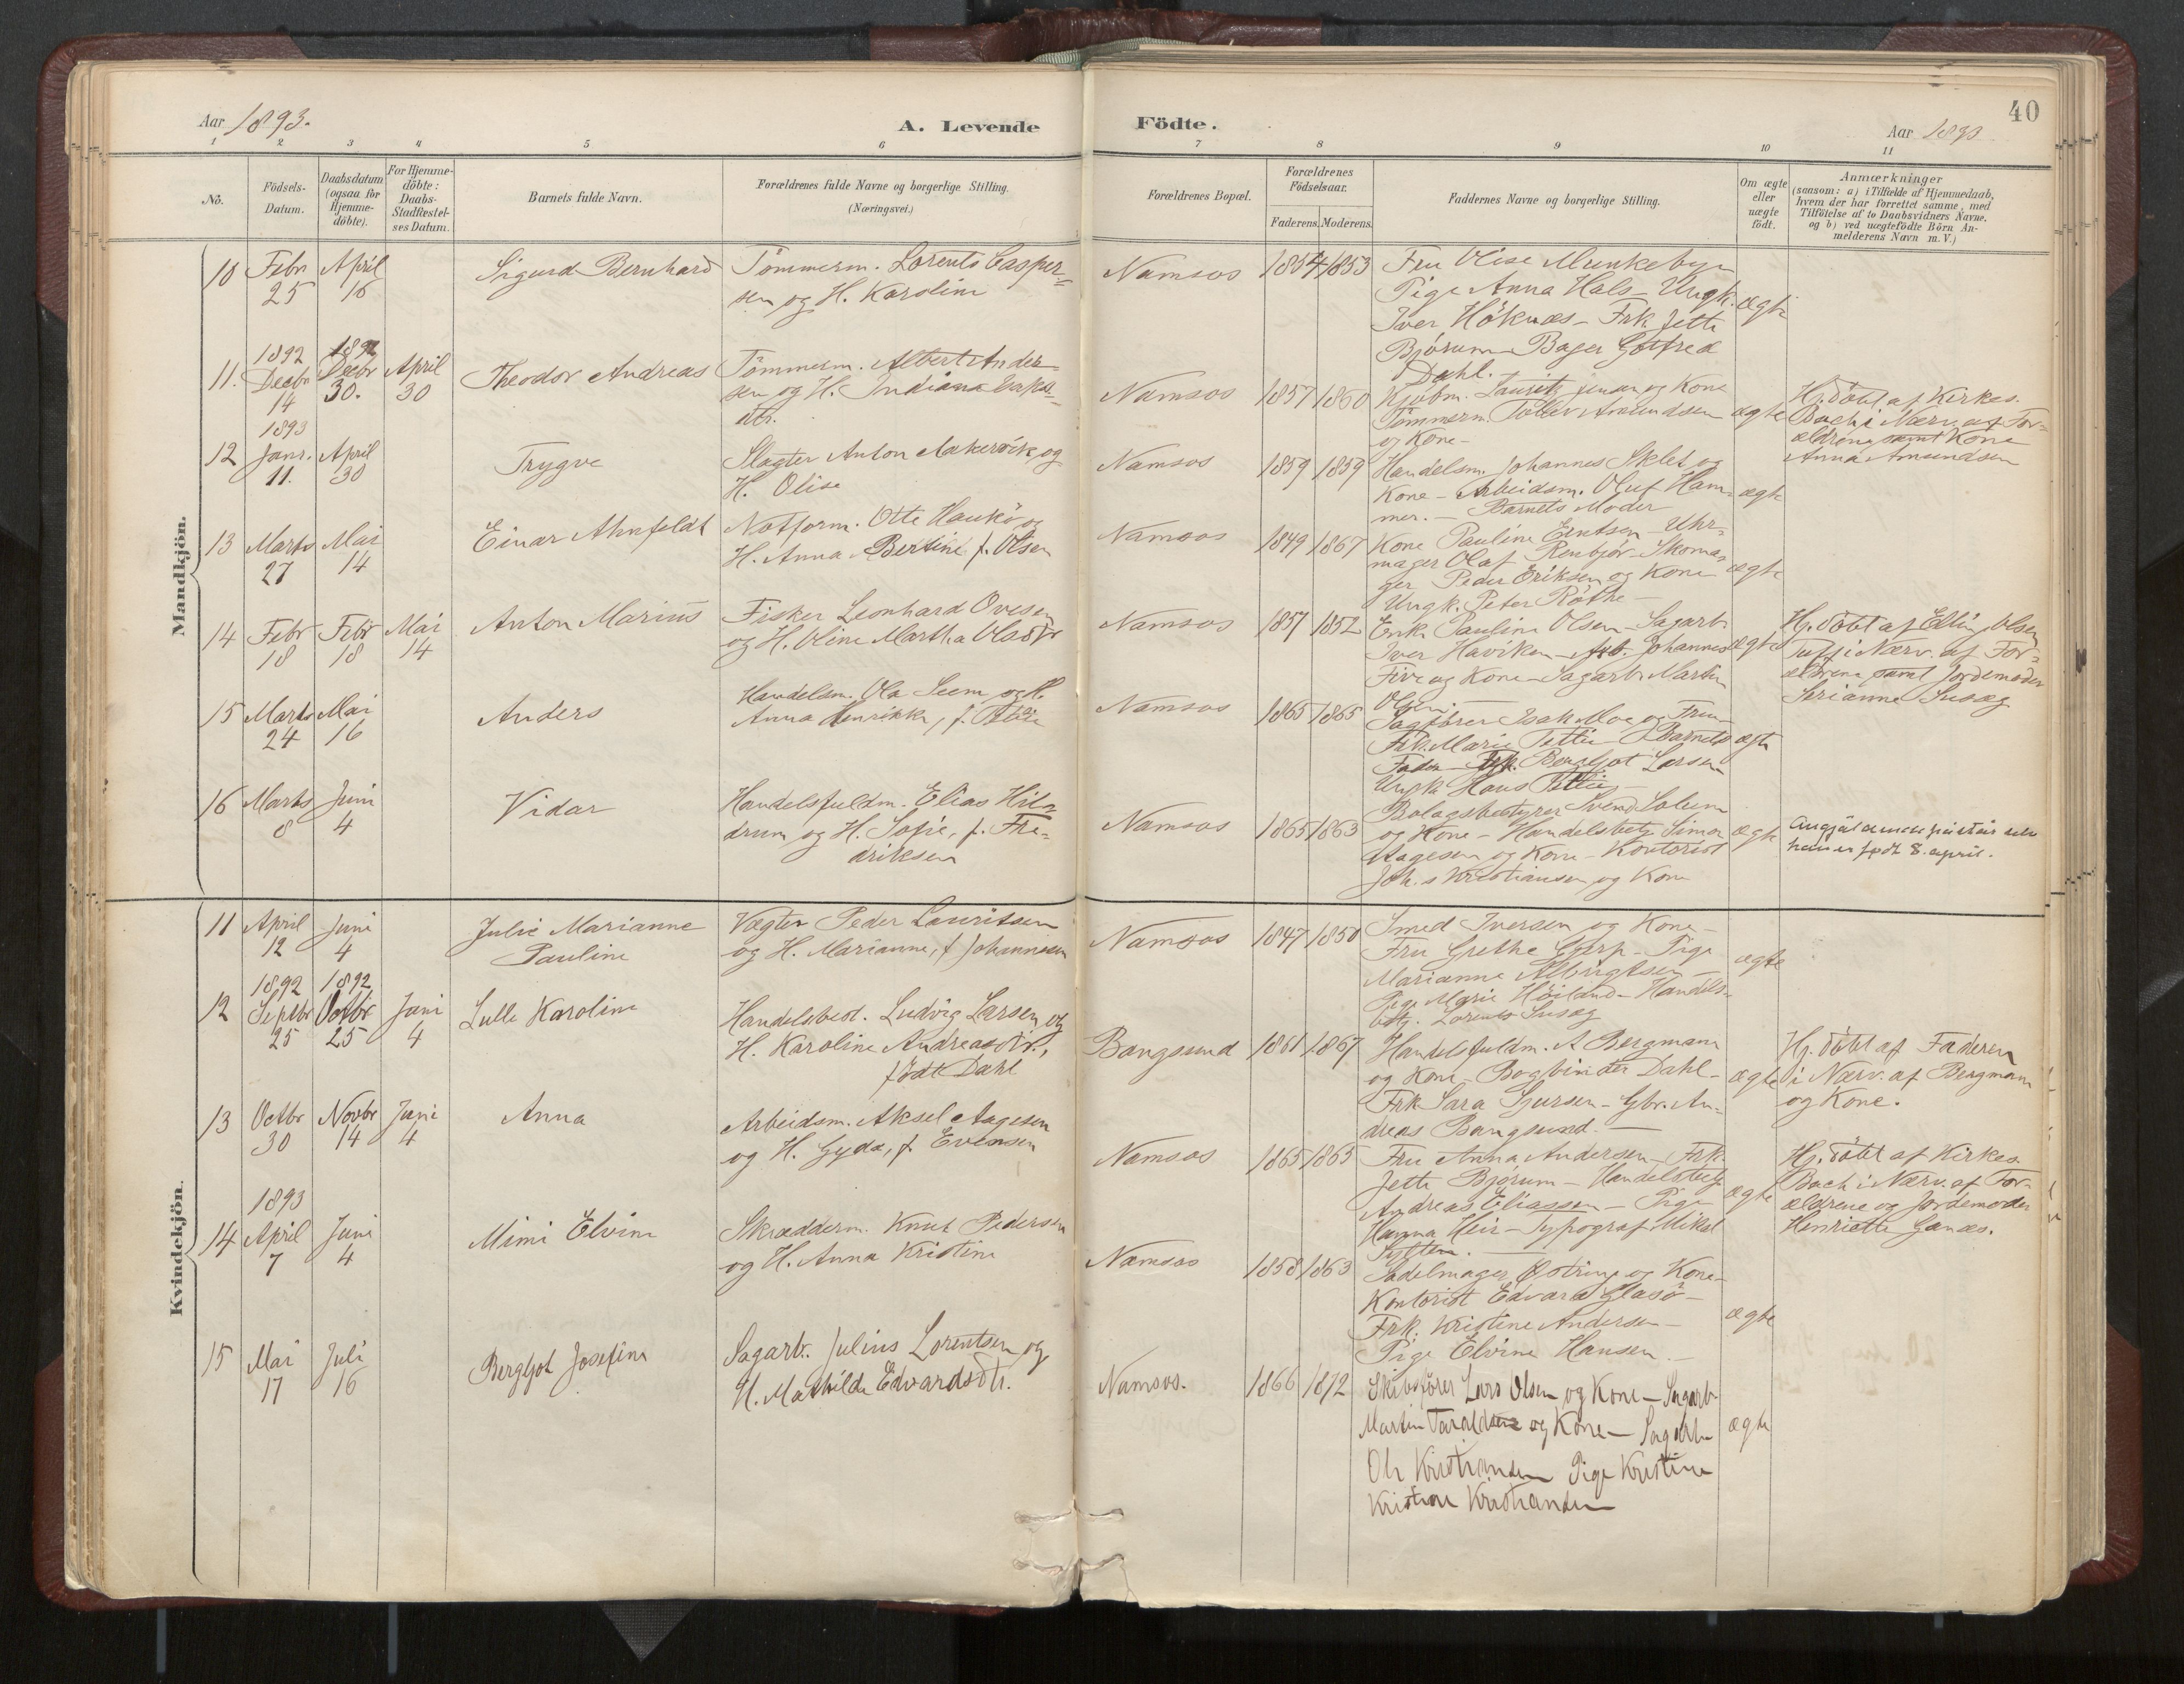 Aar 1893.
A. Levende
Födte.
40
Aar 1893
1 2 3 4 5 6 7 8 9 10 11
No.
Födsels-
Datum.
Daabsdatum
(ogsaa for
Hjemme-
döbte).
For Hjemme-
döbte:
Daabs-
Stadfæstel-
ses Datum.
Barnets fulde Navn.
Forældrenes fulde Navne og borgerlige Stilling.
(Næringsvei.)
Forældrenes Bopæl.
Forældrenes
Födselsaar.
Faderens. Moderens.
Faddernes Navne og borgerlige Stilling.
Om ægte
eller
uægte
födt.
Anmærkninger
(saasom: a) i Tilfælde af Hjemmedaab,
hvem der har forrettet samme, med
Tilföielse af to Daabsvidners Navne,
og b) ved uægtefödte Börn An-
melderens Navn m. V.)
Mandkjön.
10
Febr
25
April
16
Sigurd Bernhard
Tömmerm. Lorents Casper-
sen og H. Karoline
Namsos
1854
1853
Fru Olise Munkeby
Pige Anna Hals - Ungk.
Iver Höknæs - Frk Jette
Bjørum - Bager Gotfred
Dahl.
ægte
11.
1892
Decbr
14
1892
Decbr
30.
April
30
Theodor Andreas
Tömmerm. Albert Ander-
sen og H. Indiana
dtr.
Namsos
1857
1860
Kjøbm. Lauritz Jensen og Kone
Tömmerm. Tollev Amundsen
og Kone -
ægte
Hj. döbt af Kirkes.
Bach i Nærv. af For-
ældrene samt Kone
Anna Amundsen
12
1893
Janr.
11.
April
30
Trygve
Slagter Anton Aakervik og
H. Olise
Namsos
1859
1859
Handelsm. Johannes Sklet og
Kone - Arbeidsm. Oluf Ham-
mer. - Barnets Moder
ægte
13
Marts
27
Mai
14
Einar Ahnfeldt
Notform. Otte Haukö og
H. Anna Bertine f. Olsen
Namsos
1849
1867
Kone Pauline Erntsen - Uhr-
mager Olaf Renbjør - Skoma-
ger Peder Eriksen og Kone
Ungk. Peter Röthe -
ægte
14
Febr
18
Febr
18
Mai
14
Anton Marius
Fisker Leonhard Ovesen
og H. Oline Martha Olasdtr
Namsos
1857
1852
Enke Pauline Olsen - Sagarb.
Iver Haviken - Arb. Johannes
og Kone - Sagarb. Martin
Olsen. -
ægte
Hj. döbt af Elling Olsen
i Nærv. af For-
ældrene samt Jordemoder
Serianne Susæg
15
Marts
24
Mai
16
Anders
Handelsm. Ola Seem og H.
Anna Henrikke, f.
Namsos
1865
1865
Sagförer Isak Moe og Frue
Frk. Marie - Barnets
Fader - Frk. Bergljot Larsen
Ungk Hans
ægte
16
Marts
8
Juni
4
Vidar
Handelsfuldm. Elias Hil-
drum og H. Sofie, f. Fre-
driksen
Namsos
1865
1863
Bolagsbestyrer Svend Solum
og Kone - Handelsbetj. Simon
Aagesen og Kone - Kontorist
Joh.s Kristiansen og Kone
ægte
Angjældende påstår selv
han er født 8. april.
Kvindekjön.
11
April
12
Juni
4
Julie Marianne
Pauline
Vægter Peder Lauritsen
og H. Marianne, f. Johannesen
Namsos
1847
1850
Smed Iversen og Kone -
Fru Grethe - Pige
Marianne Albrigtsen -
Pige Marie Höiland - Handels-
betj. Lorents Susæg
ægte
12
1892
Septbr
25
1892
Octbr
25
Juni
4
Lulle Karoline
Handelsbest. Ludvig Larsen og
H. Karoline Andreasdtr.,
födt Dahl
Bangsund
1861
1867
Handelsfuldm. A Bergmann
og Kone - Bogbinder Dahl -
Frk Sara Sjursen - Gbr. An-
dreas Bangsund. -
ægte
Hj. döbt af Faderen
i Nærv. af Bergmann
og Kone.
13
Octbr
30
Novbr
14
Juni
4
Anna
Arbeidsm. Aksel Aagesen
og H. Gyda, f. Evensen
Namsos
1865
1865
Fru Anna Andersen - Frk.
Jette Bjørum - Handelsbetj.
Andreas Eliassen - Pige
Hanna Heir - Typograf Mikal
Sylten. -
ægte
Hj. döbt af Kirkes.
Bach i Nærv. af For-
ældrene og Jordemoder
Henriette Ganæs.
14
1893
April
7
Juni
4
Mimi Elvine
Skrædderm. Knut Pedersen
og H. Anna Kristine
Namsos
1858
1863
Sadelmager Östring og Kone -
Kontorist Edvard Glasö -
Frk. Kristine Andersen -
Pige Elvine Hansen. -
ægte
15
Mai
17
Juli
16
Bergljot Josefine
Sagarb. Julius Lorentsen og
H. Mathilde Edvardsdtr.
Namsos.
1866
1872
Skibsfører Lars Olsen og Kone - Sagarb
Martin Taraldsen og Kone - Sagarb
Ole Kristiansen Pige Kristine
Kristine Kristiansen
ægte